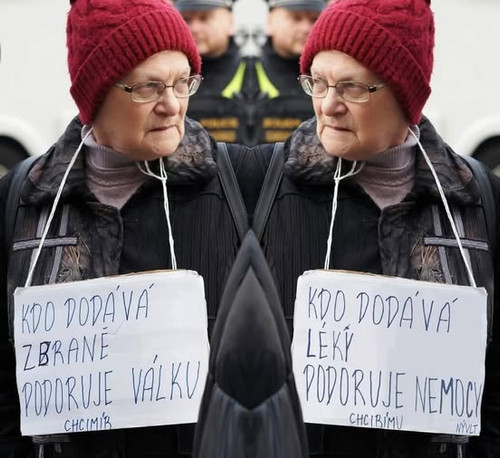 KDO DODÁVÁ
ZBRANĚ
PODORUJE VÁLKU
CHCIMÍR
KDO DODÁVÁ
LÉKÝ
PODORUJE NEMOCY
CHCIRÍMU
NÝVLT